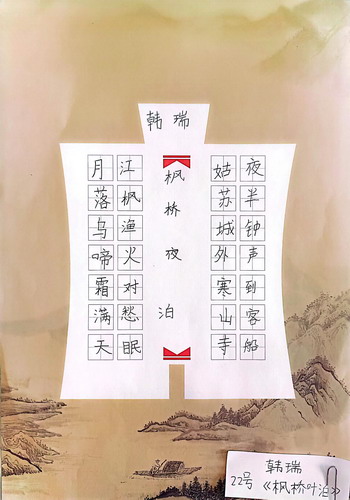 韩瑞
枫桥夜泊
月落乌啼霜满天
江枫渔火对愁眠
姑苏城外寒山寺
夜半钟声到客船
韩瑞
22号《枫桥叶泊》